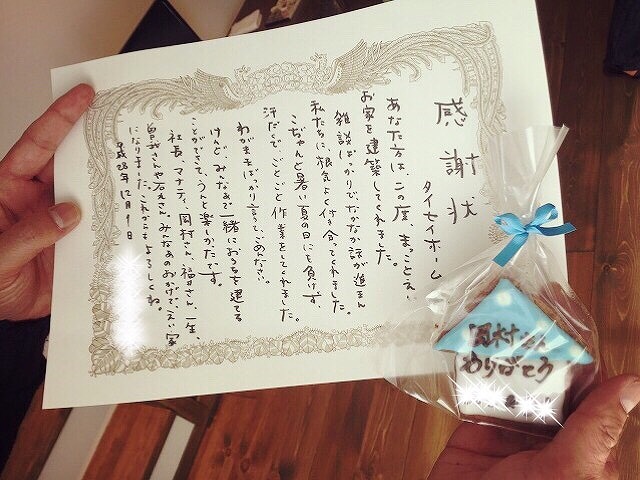 感謝状
タイセイホーム
あなた方は、この度、まっことえい
お家を建築してくれました。
雑談ばっかりで、なかなか話が進まん
私たちに、根気よく付き合ってくれました。
こぢゃんと暑い夏の日にも負けず、
汗だくで、ごとごと作業をしてくれました。
わがままばっかり言うて、ごめんなさい。
けんど、みんなあで一緒におうちを建てる
ことができて、うんと楽しかったです。
社長、マナティ、岡村さん、福井さん、一生、
曽我さんや石元さん、みんなあのおかげで、えい家
になりました。これからもよろしくね。
平成28年12月9日
岡村さん
ありがとう